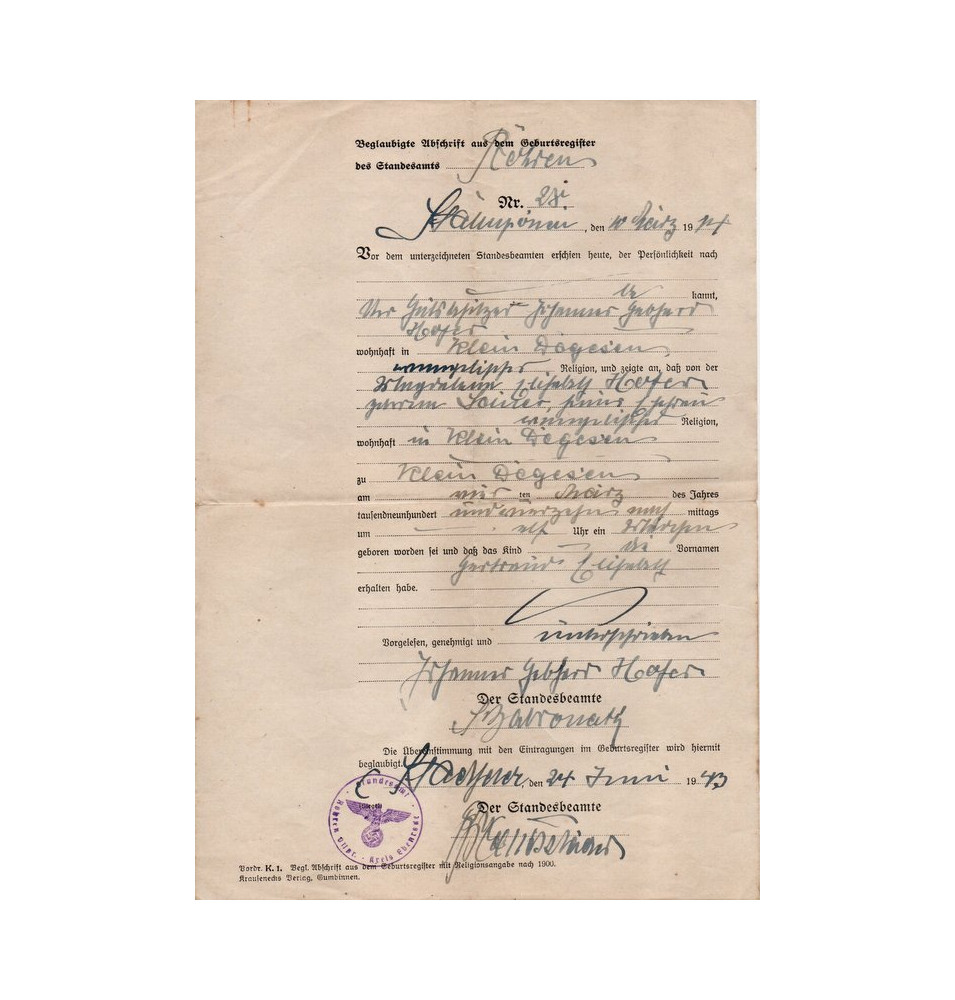 Beglaubigte Abschrift aus dem Geburtsregister
des Standesamts Röhren
Nr. 28
, den 10 März 1914
Vor dem unterzeichneten Standesbeamten erschien heute, der Persönlichkeit nach
be kannt,
Der Gutsbesitzer Johannes Gebhard
Hofer
wohnhaft in Klein Degesen
evangelischer Religion, und zeigte an, daß von der
Magdalena Elisabeth Hofer
geborene seiner Ehefrau
evangelischer Religion,
wohnhaft in Klein Degesen
zu Klein Degesen
am vier ten März des Jahres
tausendneunhundert und vierzehn nach mittags
um elf Uhr ein Mädchen
geboren worden sei und daß das Kind die Vornamen
Gertraud Elisabeth
erhalten habe.
Vorgelesen, genehmigt und unterschrieben
Johannes Gebhard Hofer
Der Standesbeamte
Die Übereinstimmung mit den Eintragungen im Geburtsregister wird hiermit
beglaubigt.
, den 24 Juni 1943
Standesamt
Röhren Ostpr. · Kreis Ebenrode
Der Standesbeamte
Vordr. K. 1. Begl. Abschrift aus dem Geburtsregister mit Religionsangabe nach 1900.
Krausenecks Verlag, Gumbinnen.